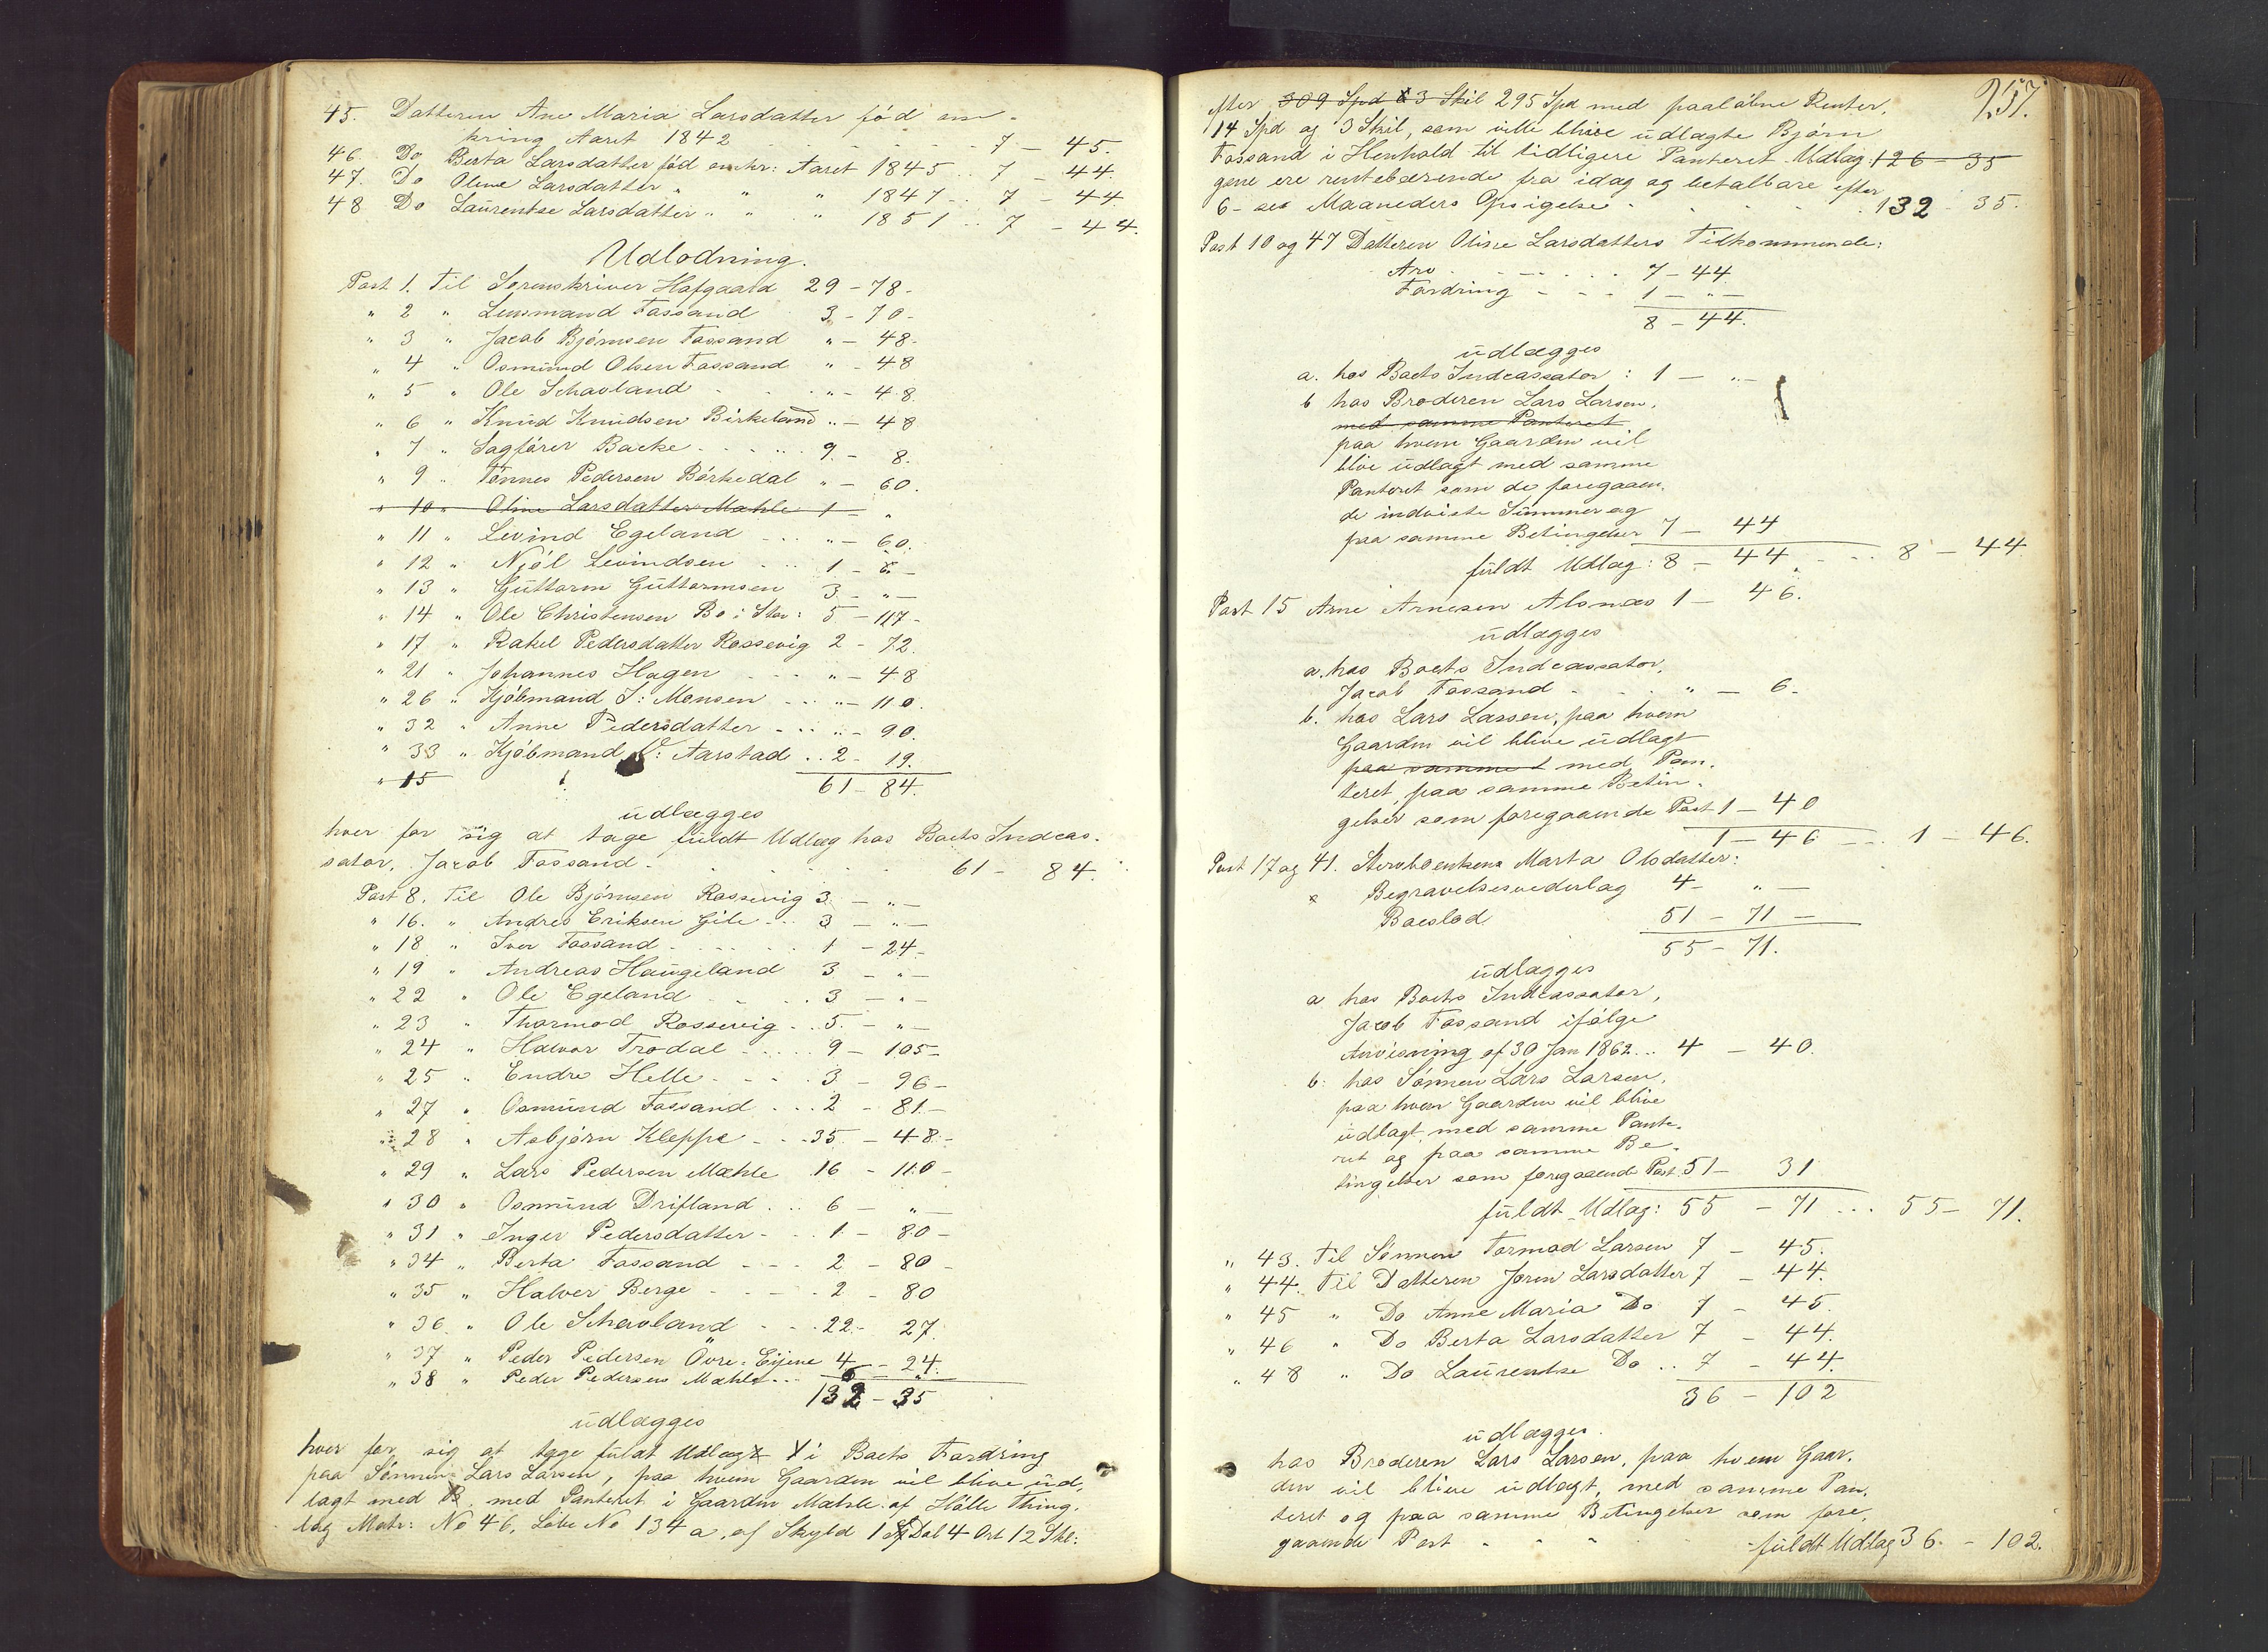 45. Datteren Ane Maria Larsdatter fød om-
kring Aaret 1842 . . . . . . 7 – 45.
46. Do Berta Larsdatter fød omkr: Aaret 1845 .. 7 – 44.
47. Do Oline Larsdatter " " " 1847 .. 7 – 44
48 Do Laurentse Larsdatter " " " 1851 .. 7 – 44.
Udlodning.
Post 1. Til Sorenskriver Hafgaard 29 – 78 –
" 2 " Lensmand Fossand 3 – 70 –
" 3 " Jacob Bjørnsen Fossand " – 48 –
" 4 " Osmund Olsen Fossand " – 48
" 5 " Ole Schavland . . . " – 48
" 6 " Knud Knudsen Birkeland .. – 48
" 7 " Sagfører Backe . . . . . 9. – 8.
" 9 " Tønnes Pedersen Børkedal " – 60.
" 10 " Oline Larsdatter Mæhle 1 – "
" 11 " Eivind Egeland . . . " – 60.
" 12 " Njøl Eivindsen . . . 1 – 6 –
" 13 " Guttorm Guttormsen 3 – " –
" 14 " Ole Christensen Bo: Stav: 5 – 117 –
" 17 " Rakel Pedersdatter Rossevig 2 – 72.
" 21 " Johannes Hagen . . . " – 48
" 26 " Kjøbmand S: Monsen . . . " – 110.
" 32 " Anne Pedersdatter . . . " – 90.
" 33 " Kjøbmand V: Aarstad . . 2 – 19.
" 15
61 – 84.
udlægges
hver for sig at tage fuldt Udlæg hos Boets Indcas-
sator, Jacob Fossand . . . . . . 61 – 84.
Post 8. Til Ole Bjørnsen Rossevig 3 – " –
" 16. " Andreas Eriksen Gile . . 3 – " –
" 18 " Iver Fossand . . . . . 1 – 24 –
" 19 " Andreas Haugeland 3 – " –
" 22 " Ole Egeland . . . . 3 – " –
" 23 " Thormod Rossevig . . 5. – " –
" 24 " Halvor Trodal . . . . 9 – 105 –
" 25 " Endre Helle . . . . 3 – 96 –
" 27 " Osmund Fossand . . . 2 – 81 –
" 28 " Asbjørn Kleppe . . . 35 – 48 –
" 29 " Lars Pedersen Mæhle 16 – 110 –
" 30 " Osmund Drifland . . . 6 – " –
" 31 " Inger Pedersdatter . . . 1 – 80 –
" 34 " Berta Fossand . . . 2 – 80 –
" 35 " Halver Berge . . . . 2 – 80
" 36 " Ole Schavland . . . 22 – 27.
" 37 " Peder Pedersen Øvre-Eijene 4 – 24.
" 38 " Peder Pedersen Mæhle . . . 6 – " –
132 – 35
udlægges
hver for sig at tage fuldt Udlægt i Boets Fordring
paa Sønnen Lars Larsen, paa hvem Gaarden vil blive ud-
lagt med B. med Panteret i Gaarden Mæhle af Hølle Thing-
lag Matr: No 46, Løbe No 134 a, af Skyld 1 Dal 4 Ort 12 Skl:
257.
efter 309 Spd & 3 Skil 295 Spd med paaløbne Renter,
14 Spd og 3 Skil, som ville blive udlagte Bjørn
Fossand i Henhold til tidligere Panteret. Udlæg- 126 – 35
gene ere rentebærende fra idag og betalbare efter
6 – sex Maaneders Opsigelse . . . . . 132 – 35.
Post 10 og 47 Datteren Oline Larsdatters Tilkommende:
Arv . . . . . . 7 – 44.
Fordring . . . 1 – " –
8 – 44.
udlægges
a. hos Boets Indcassator : 1 – " –
b hos Broderen Lars Larsen,
med samme Panteret
paa hvem Gaarden vil
blive udlagt med samme
Panteret som de foregaaen-
de indviste Summer og
paa samme Betingelser 7 – 44
fuldt Udlæg: 8 – 44 . . . . 8 – 44.
Post 15 Arne Arnesen Alsnæs 1 – 46.
udlægges
a. hos Boets Indcassator,
Jacob Fossand . . . " – 6 –
b. hos Lars Larsen, paa hvem
Gaarden vil blive udlagt
paa samme med Pan-
teret, paa samme Betin-
gelser som foregaaende Post 1 – 40
1 – 46 . . . 1 – 46.
Post 17 og 41. Stervboenken Marta Olsdatter:
Begravelsesvederlag 4 – " –
Boeslod 51 – 71 –
55 – 71.
udlægges
a hos Boets Indcassator,
Jacob Fossand ifølge
Anvisning af 30 Jan 1862 . . 4 – 40.
b: hos Sønnen Lars Larsen,
paa hvem Gaarden vil blive
udlagt, med samme Pante-
ret og paa samme Be-
tingelser som foregaaende Post. 51 – 31
fuldt Udlæg: 55 – 71 . . . 55 – 71.
" 43. Til Sønnen Tormod Larsen 7 – 45.
" 44. Til Datteren Joren Larsdatter 7 – 44.
" 45 " Do Anne Maria Do 7 – 45.
" 46 " Do Berta Larsdatter 7 – 44.
" 48 " Do Laurentse Do . . 7 – 44.
36 – 102
udlægges.
hos Broderen Lars Larsen, paa hvem Gaar-
den vil blive udlagt, med samme Pan-
teret og paa samme Betingelser som fore-
gaaende Post . . . . fuldt Udlæg 36. – 102.